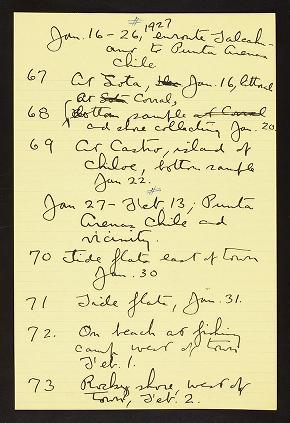 1927
Jan. 16-26, enroute Talcah-
and to Punta Arenas
Chile
67 At Lota, Jan. 16, littoral
68 At Corral,
bottom sample at Corral
and shore collecting Jan. 20.
69 At Castro, island of
Chiloe, bottom sample
Jan 22.
Jan 27 - Feb 13, Punta
Arenas Chile and
vicinity.
70 Tide flats east of town
Jan. 30
71 Tide flats, Jan. 31.
72. On beach at fishing
camp west of town
Feb. 1.
73 Rocky shore, west of
town, Feb. 2.